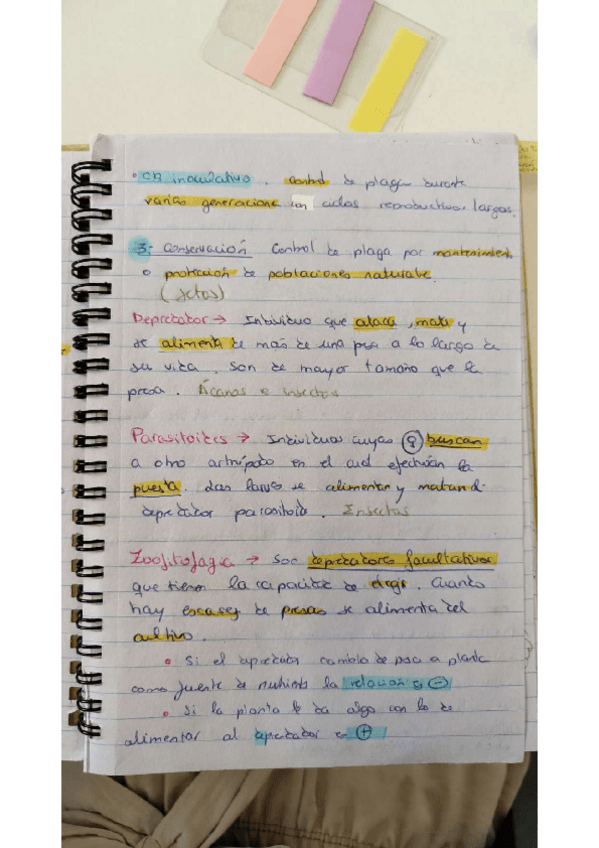 • CB inoculativo. control de plagas durante
varias generacione con ciclos reproductivos largos.
3. Conservación Control de plaga por mantenimiento
o protección de poblaciones naturale.
(setos)
Depredador → Individuo que ataca, mata y
se alimenta de más de una presa a lo largo de
su vida. Son de mayor tamaño que la
presa. Ácaros e insectos
Parasitoides → Individuos cuyas ♀ buscan
a otro artrópodo en el cual efectúan la
puesta. Las larvas se alimentan y matan
depredador parasitoide. Insectos
Zoofitofagia → Son depredadores facultativos
que tienen la capacidad de elegir. Cuando
hay escasez de presas se alimenta del
cultivo.
• Si el depredador cambia de presa a planta
como fuente de nutrientes la relación es ⊖
• Si la planta le da algo con lo de
alimentar al depredador es ⊕